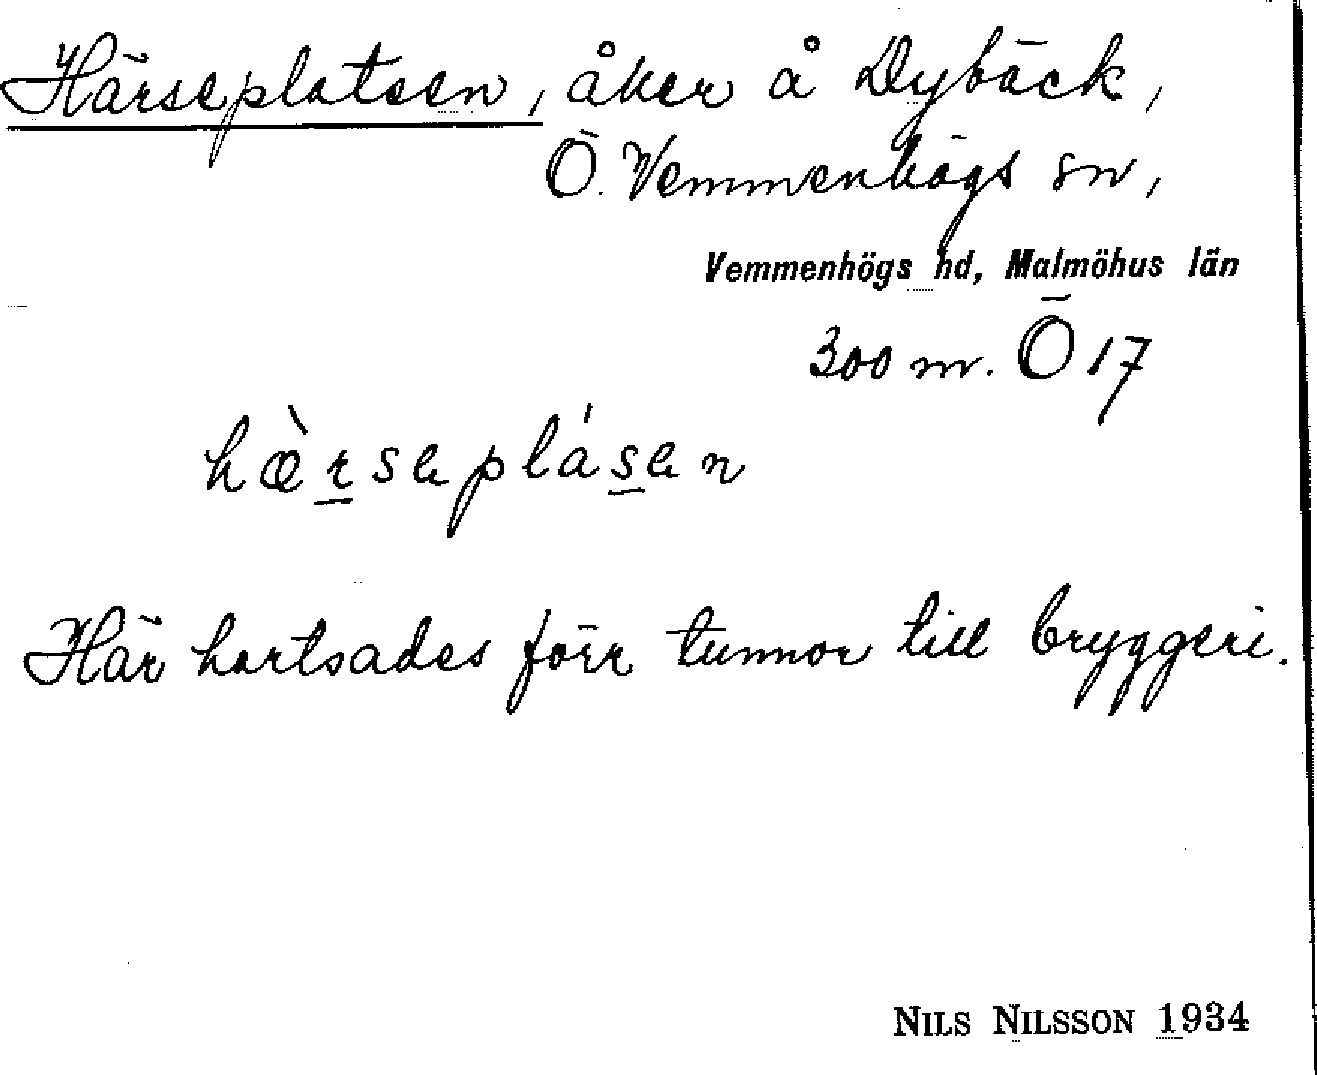 Härseplatsen, åker å Dybäck,
Ö. Vemmenhögs sn,
Vemmenhögs hd, Malmöhus län
300 m. Ö 17
hæ̀r̲seplás̲en
Här hartsades förr tunnor till bryggeri.
NILS NILSSON 1934